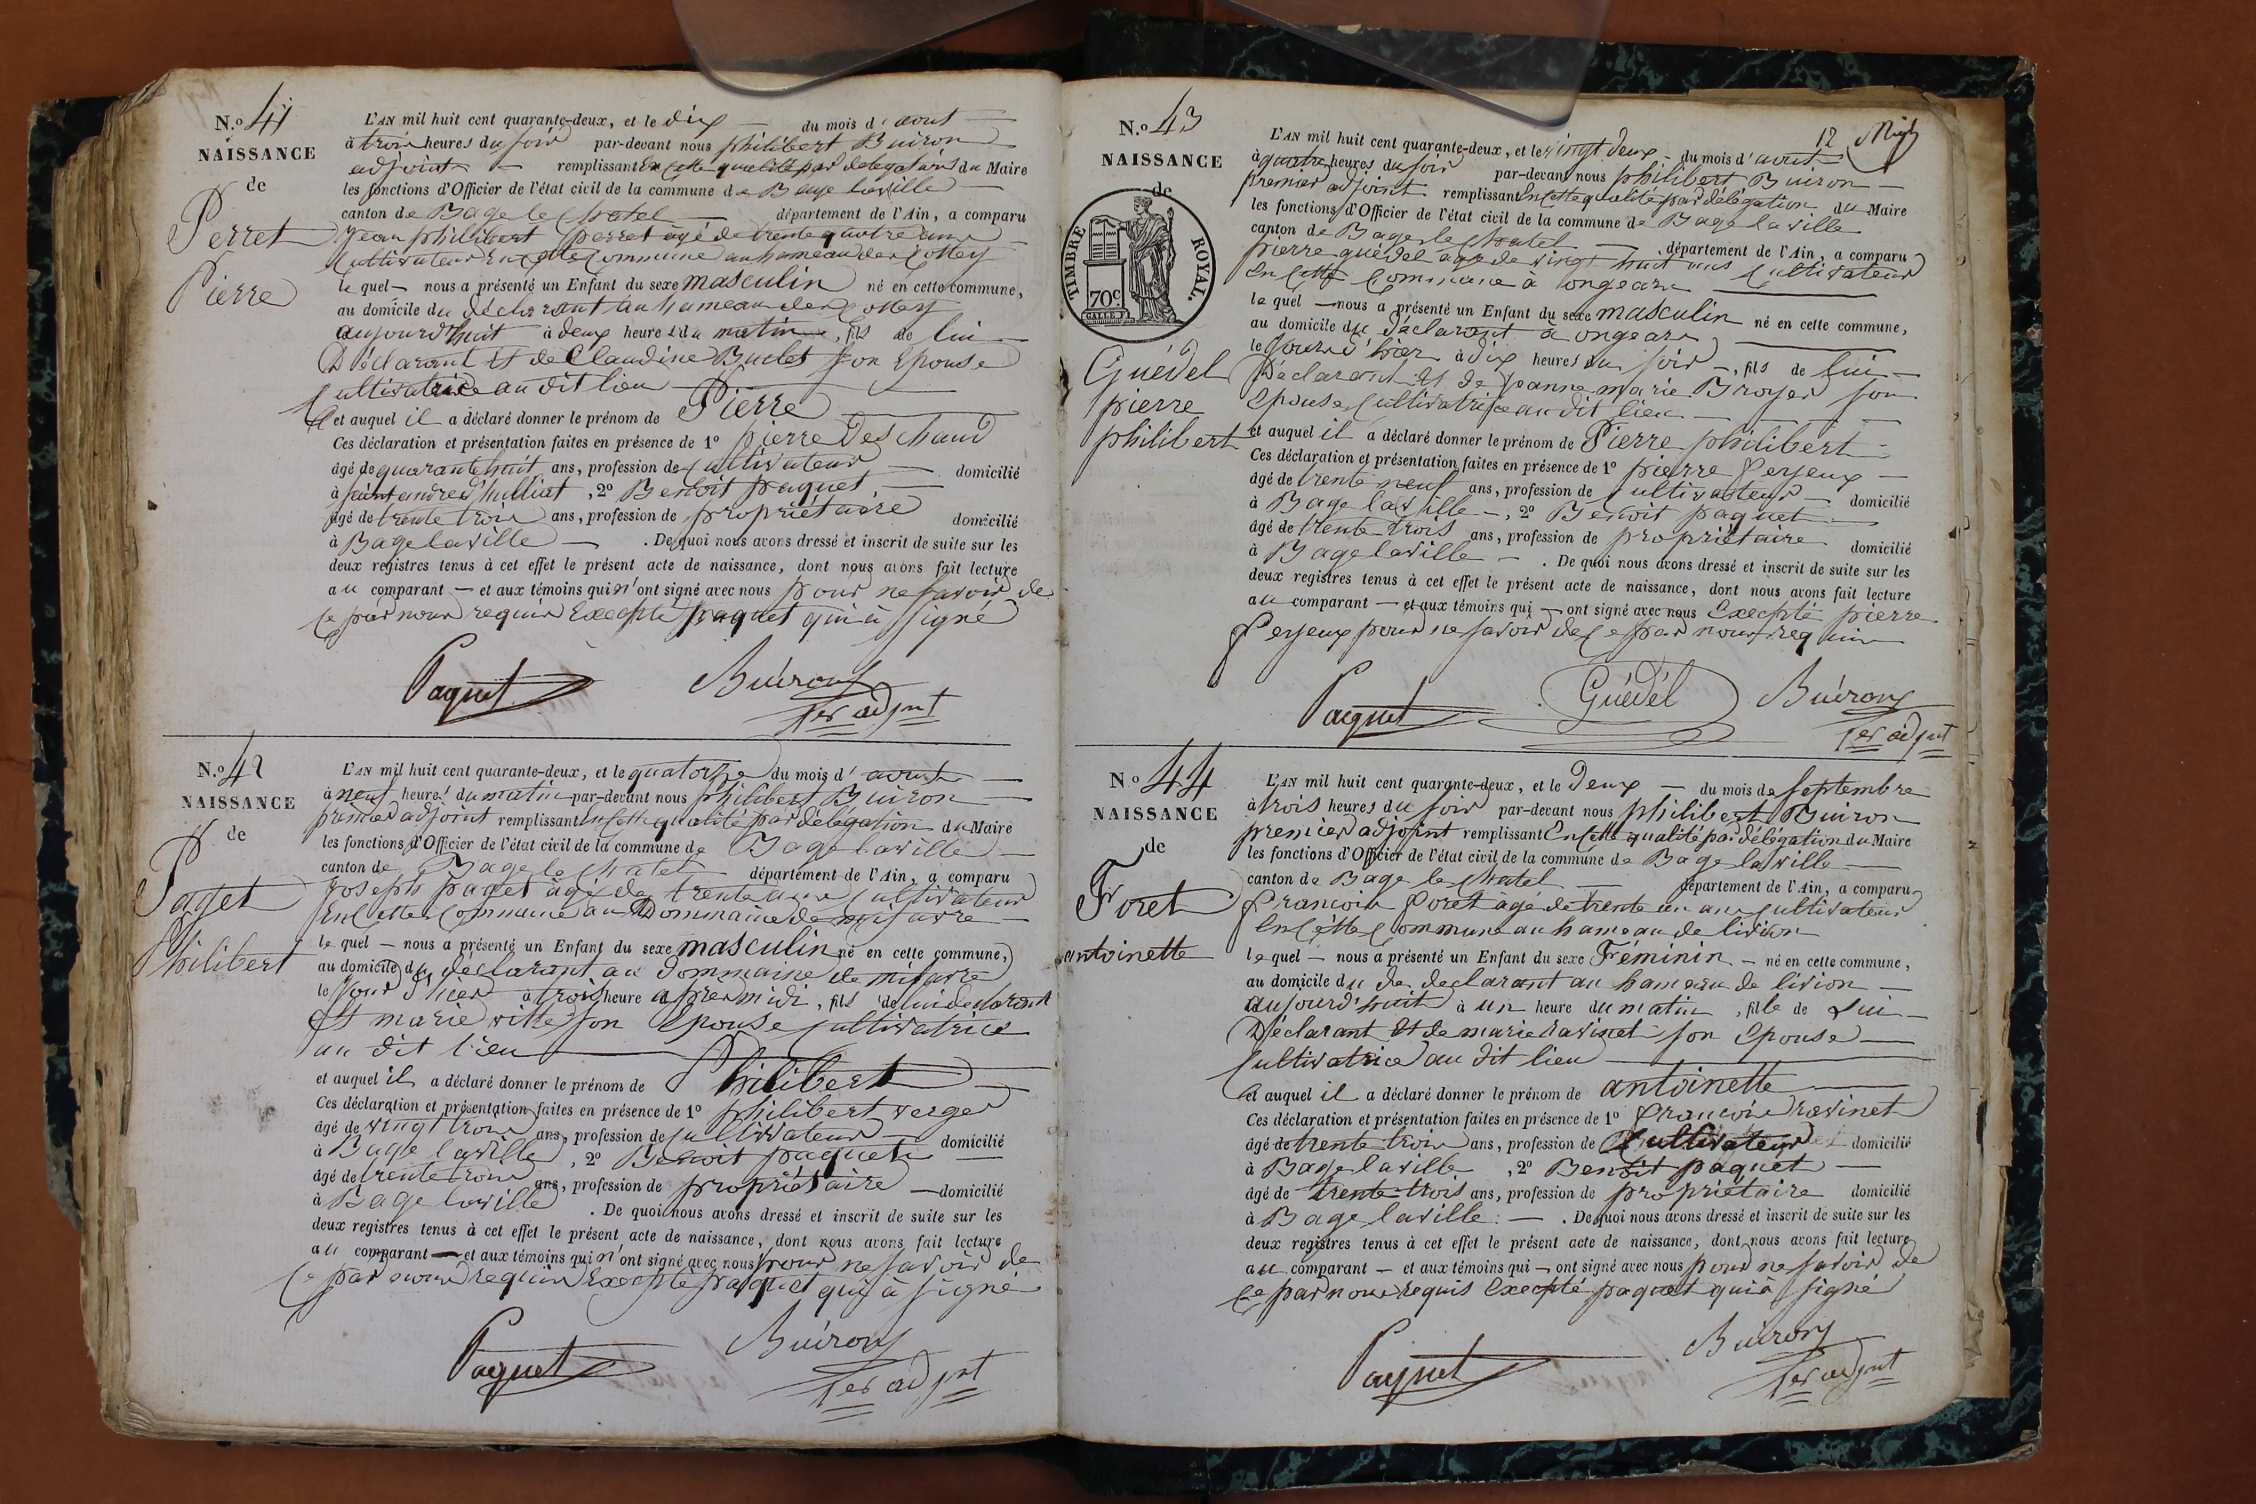 N.o 41
NAISSANCE
de
Perret
Pierre
L'AN mil huit cent quarante-deux, et le dix — du mois d'aout —
à trois heures du soir par-devant nous philibert Buiron
adjoint — remplissant en cette qualité par délégation du Maire
les fonctions d'Officier de l'état civil de la commune de Bage laville —
canton de Bage le chatel — département de l'Ain, a comparu
jean philibert perret âgé de trente quatre ans
cultivateur en cette commune au hameau des
le quel — nous a présenté un Enfant du sexe masculin né en cette commune,
au domicile du déclarant au hameau des
aujourd'huit à deux heures du matin, fils de lui —
Déclarant et de Claudine Buclet son épouse
cultivatrice au dit lieu —
et auquel il a déclaré donner le prénom de Pierre —
Ces déclaration et présentation faites en présence de 1o pierre Deschaud
âgé de quarante huit ans, profession de cultivateur — domicilié
à saint andre d'huiriat, 2o Benoit paquet —
âgé de trente trois ans, profession de propriétaire domicilié
à Bage laville — . De quoi nous avons dressé et inscrit de suite sur les
deux registres tenus à cet effet le présent acte de naissance, dont nous avons fait lecture
au comparant — et aux témoins qui n'ont signé avec nous pour ne savoir de
ce par nous requis excepté paquet qui à signé
Paquet Buiron
1er adjnt
N.o 42
NAISSANCE
de
Paget
Philibert
L'AN mil huit cent quarante-deux, et le quatorze du mois d'aout —
à neuf heures du matin par-devant nous philibert Buiron —
premier adjoint remplissant en cette qualité par délégation du Maire
les fonctions d'Officier de l'état civil de la commune de Bage laville —
canton de Bage le chatel département de l'Ain, a comparu
joseph paget âgé de trente ans cultivateur
en cette commune au Dommaine de misavre —
le quel — nous a présenté un Enfant du sexe masculin né en cette commune,
au domicile du déclarant au Dommaine de misavre
le jour d'hier à trois heure après midi, fils de lui declarant
et marie vitte son épouse cultivatrice
au dit lieu —
et auquel il a déclaré donner le prénom de Philibert —
Ces déclaration et présentation faites en présence de 1o philibert verger
âgé de vingt trois ans, profession de cultivateur — domicilié
à Bage laville, 2o Benoit paquet —
âgé de trente trois ans, profession de propriétaire — domicilié
à Bage laville . De quoi nous avons dressé et inscrit de suite sur les
deux registres tenus à cet effet le présent acte de naissance, dont nous avons fait lecture
au comparant — et aux témoins qui n'ont signé avec nous pour ne savoir de
ce par nous requis excepté paquet qui à signé
Paquet Buiron
1er adjnt
12
N.o 43
NAISSANCE
de
TIMBRE ROYAL.
70c
Guédel
pierre
philibert
L'AN mil huit cent quarante-deux, et le vingt deux — du mois d'aout —
à quatre heures du soir par-devant nous philibert Buiron —
premier adjoint remplissant en cette qualité par délégation du Maire
les fonctions d'Officier de l'état civil de la commune de Bage laville
canton de Bage le chatel — département de l'Ain, a comparu
pierre guédel âgé de vingt huit ans cultivateur
en cette commune à —
le quel — nous a présenté un Enfant du sexe masculin né en cette commune,
au domicile du déclarant à —
le jour d'hier à dix heures du soir —, fils de lui —
Déclarant et de jeanne marie Broyer son
épouse cultivatrice au dit lieu —
et auquel il a déclaré donner le prénom de Pierre philibert —
Ces déclaration et présentation faites en présence de 1o pierre —
âgé de trente neuf ans, profession de cultivateur — domicilié
à Bage laville —, 2o Benoit paquet —
âgé de trente trois ans, profession de propriétaire domicilié
à Bage laville — . De quoi nous avons dressé et inscrit de suite sur les
deux registres tenus à cet effet le présent acte de naissance, dont nous avons fait lecture
au comparant — et aux témoins qui — ont signé avec nous excepté pierre
pour ne savoir de ce par nous requis
Paquet Guédél Buiron
1er adjnt
No 44
NAISSANCE
de
Foret
antoinette
L'AN mil huit cent quarante-deux, et le deux — du mois de septembre
à trois heures du soir par-devant nous philibert Buiron
premier adjoint remplissant en cette qualité par délégation du Maire
les fonctions d'Officier de l'état civil de la commune de Bage laville —
canton de Bage le chatel — département de l'Ain, a comparu
francois foret âgé de trente un ans cultivateur
en cette commune au hameau de livion
le quel — nous a présenté un Enfant du sexe Féminin — né en cette commune,
au domicile du de declarant au hameau de livion —
aujourd'huit à un heure du matin, fille de Lui —
Déclarant et de marie ravinet son épouse —
cultivatrice au dit lieu —
et auquel il a déclaré donner le prénom de antoinette —
Ces déclaration et présentation faites en présence de 1o françois ravinet
âgé de trente trois ans, profession de cultivateur domicilié
à Bage laville, 2o Benoit paquet —
âgé de trente-trois ans, profession de propriétaire domicilié
à Bage laville — . De quoi nous avons dressé et inscrit de suite sur les
deux registres tenus à cet effet le présent acte de naissance, dont nous avons fait lecture
au comparant — et aux témoins qui — ont signé avec nous pour ne savoir de
ce par nous requis excepté paquet qui à signé
Paquet Buiron
1er adjnt